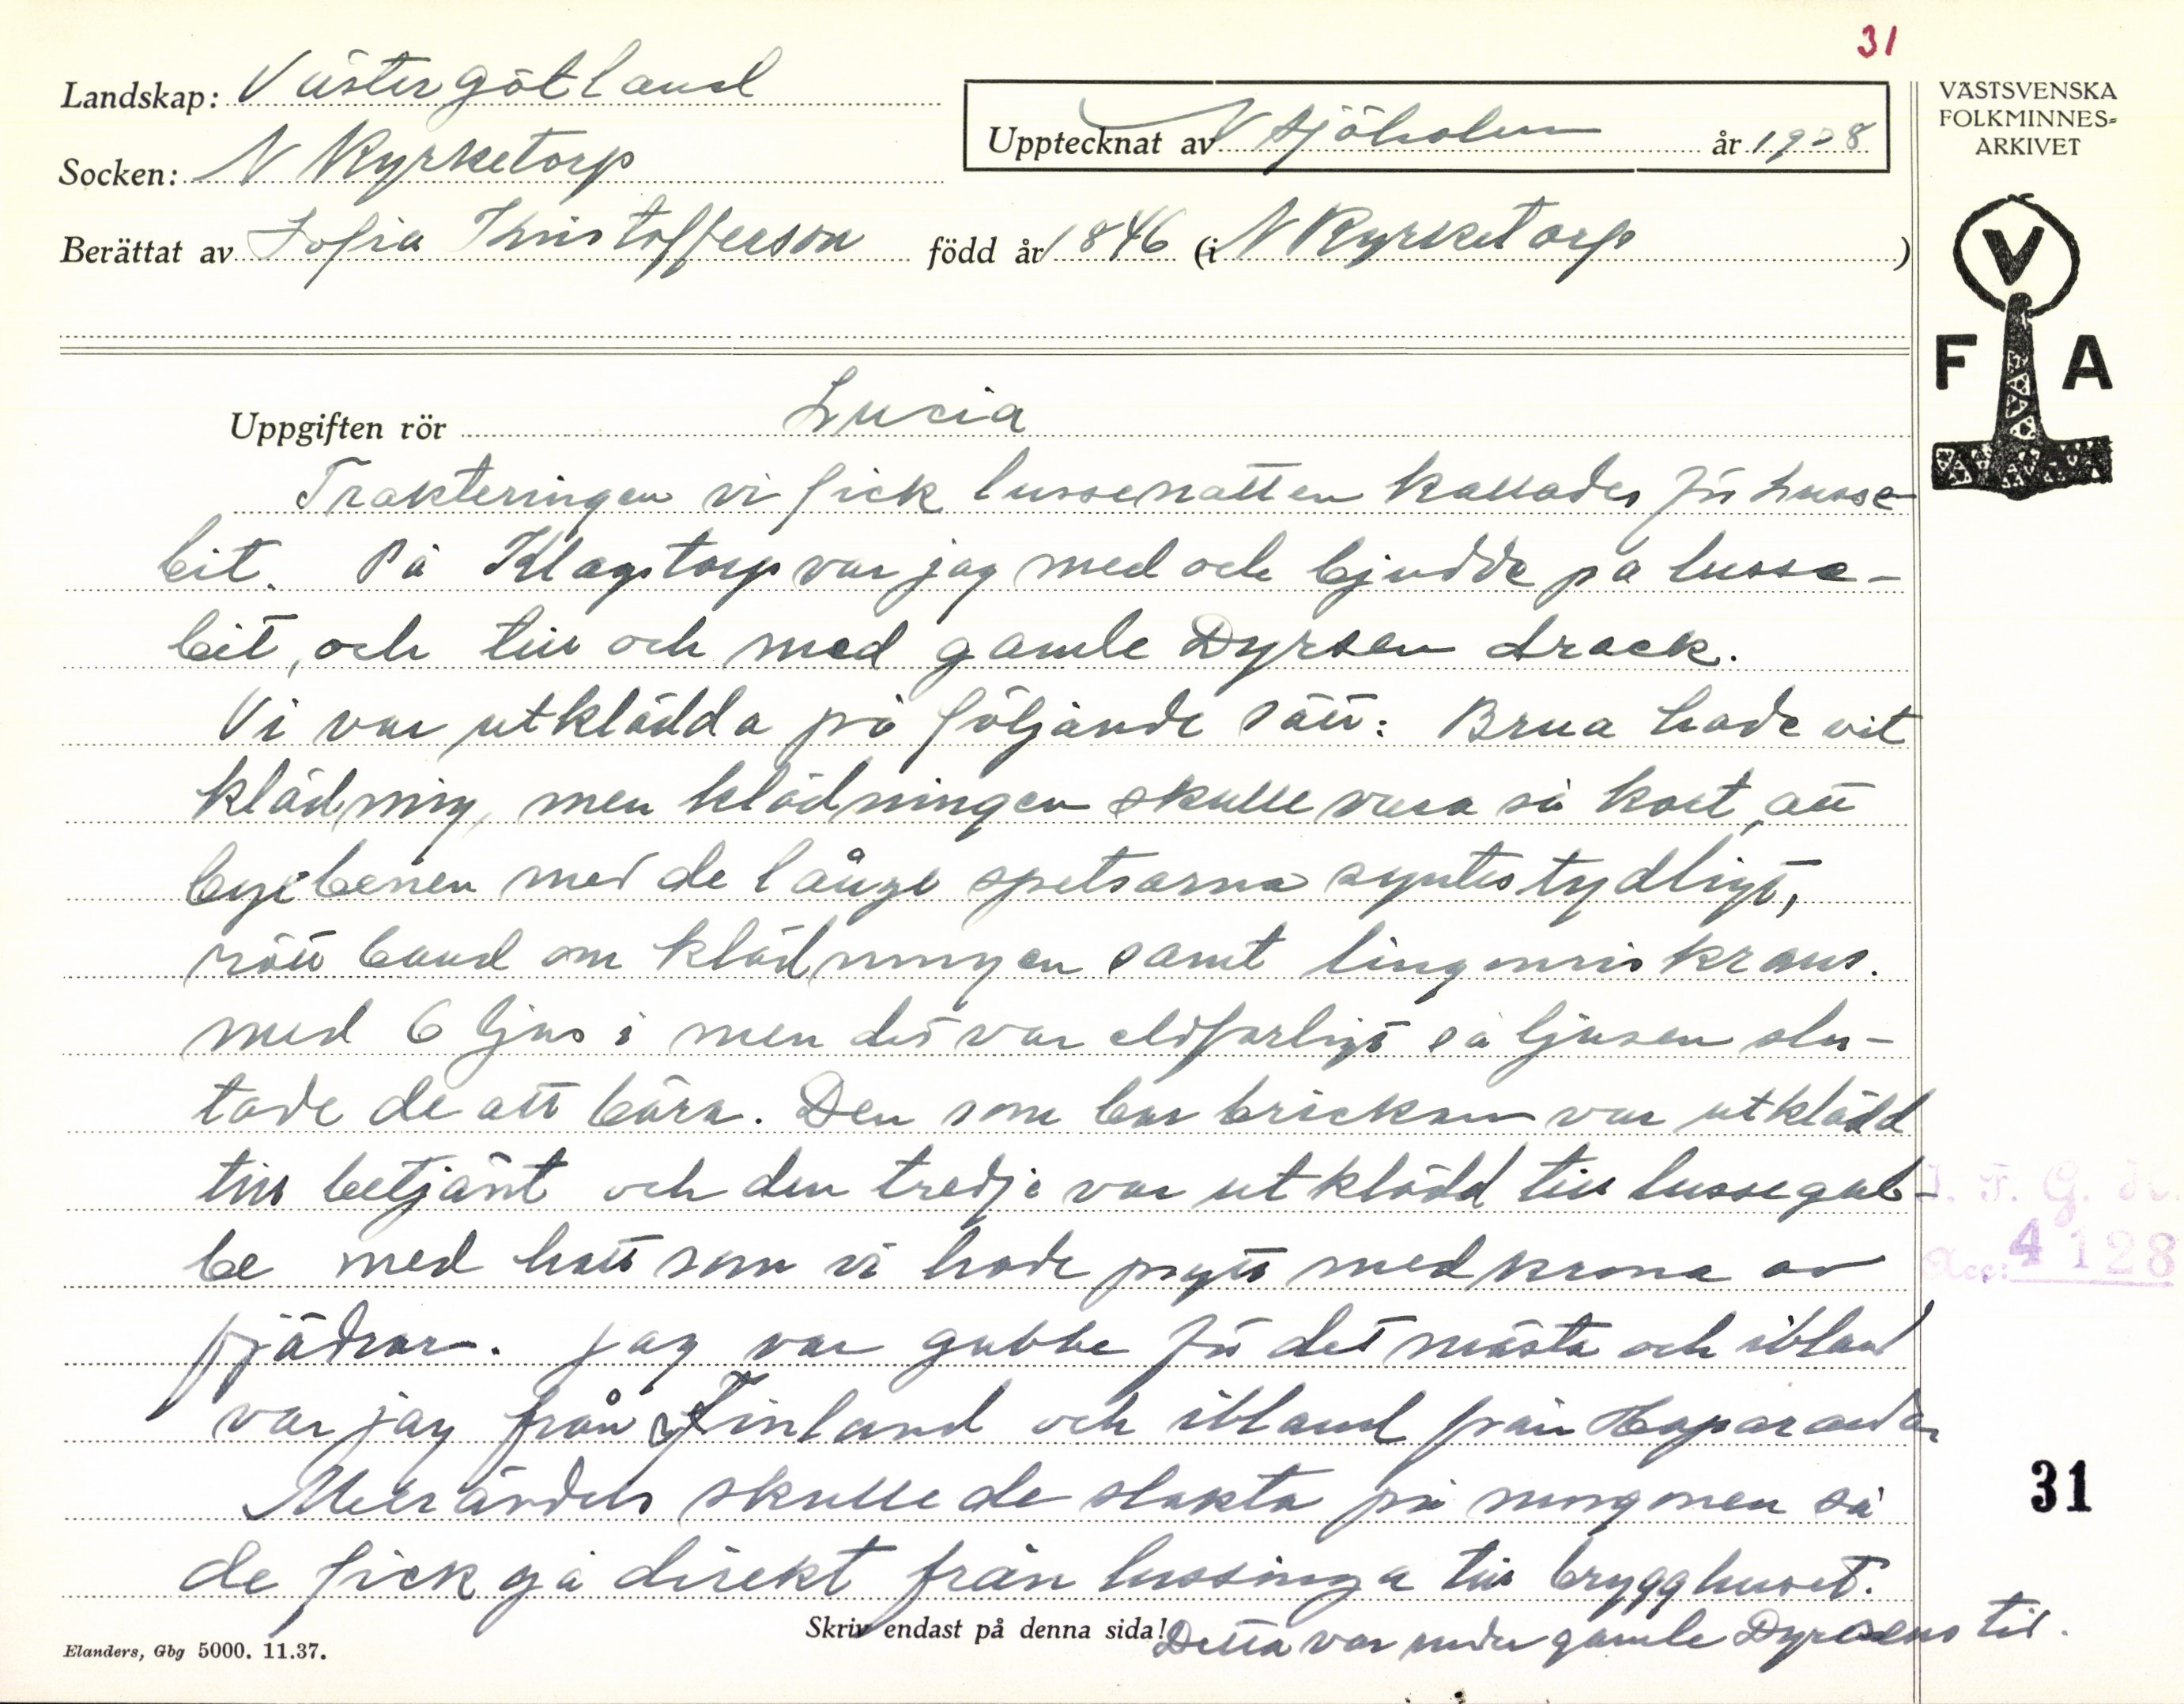 31
Landskap: Västergötland
Upptecknat av N Sjöholm år 1938
VÄSTSVENSKA
FOLKMINNES-
ARKIVET
Socken: N Kyrketorp
Berättat av Sofia Kristofferson född år 1846 (i N Kyrketorp)
V
F A
Uppgiften rör Lucia
Trakteringen vi fick lussenatten kallades för lusse-
bit. På Klagstorp var jag med och bjudde på lusse-
bit, och till och med gamle Dyrsen drack.
Vi var utklädda på följande sätt: Brua hade vit
klädning, men klädningen skulle vara så kort, att
byxbenen med de långe spetsarna syntes tydligt,
rött band om klädningen samt lingonriskrans.
med 6 ljus i men det var eldfarligt så ljusen slu-
tade de att bära. Den som bar brickan var utklädd
till betjänt och den tredje var utklädd till lussegub-
be med hatt som vi hade prytt med krona av
fjädrar. Jag var gubbe för det mästa och ibland
var jag från Finland och ibland från Haparanda
skulle de slakta på morgonen så
de fick gå direkt från lussinga till brygghuset.
Detta var under gamle Dyrsens tid.
I. F. G. H.
Acc: 4128
31
Skriv endast på denna sida!
Elanders, Gbg 5000. 11.37.